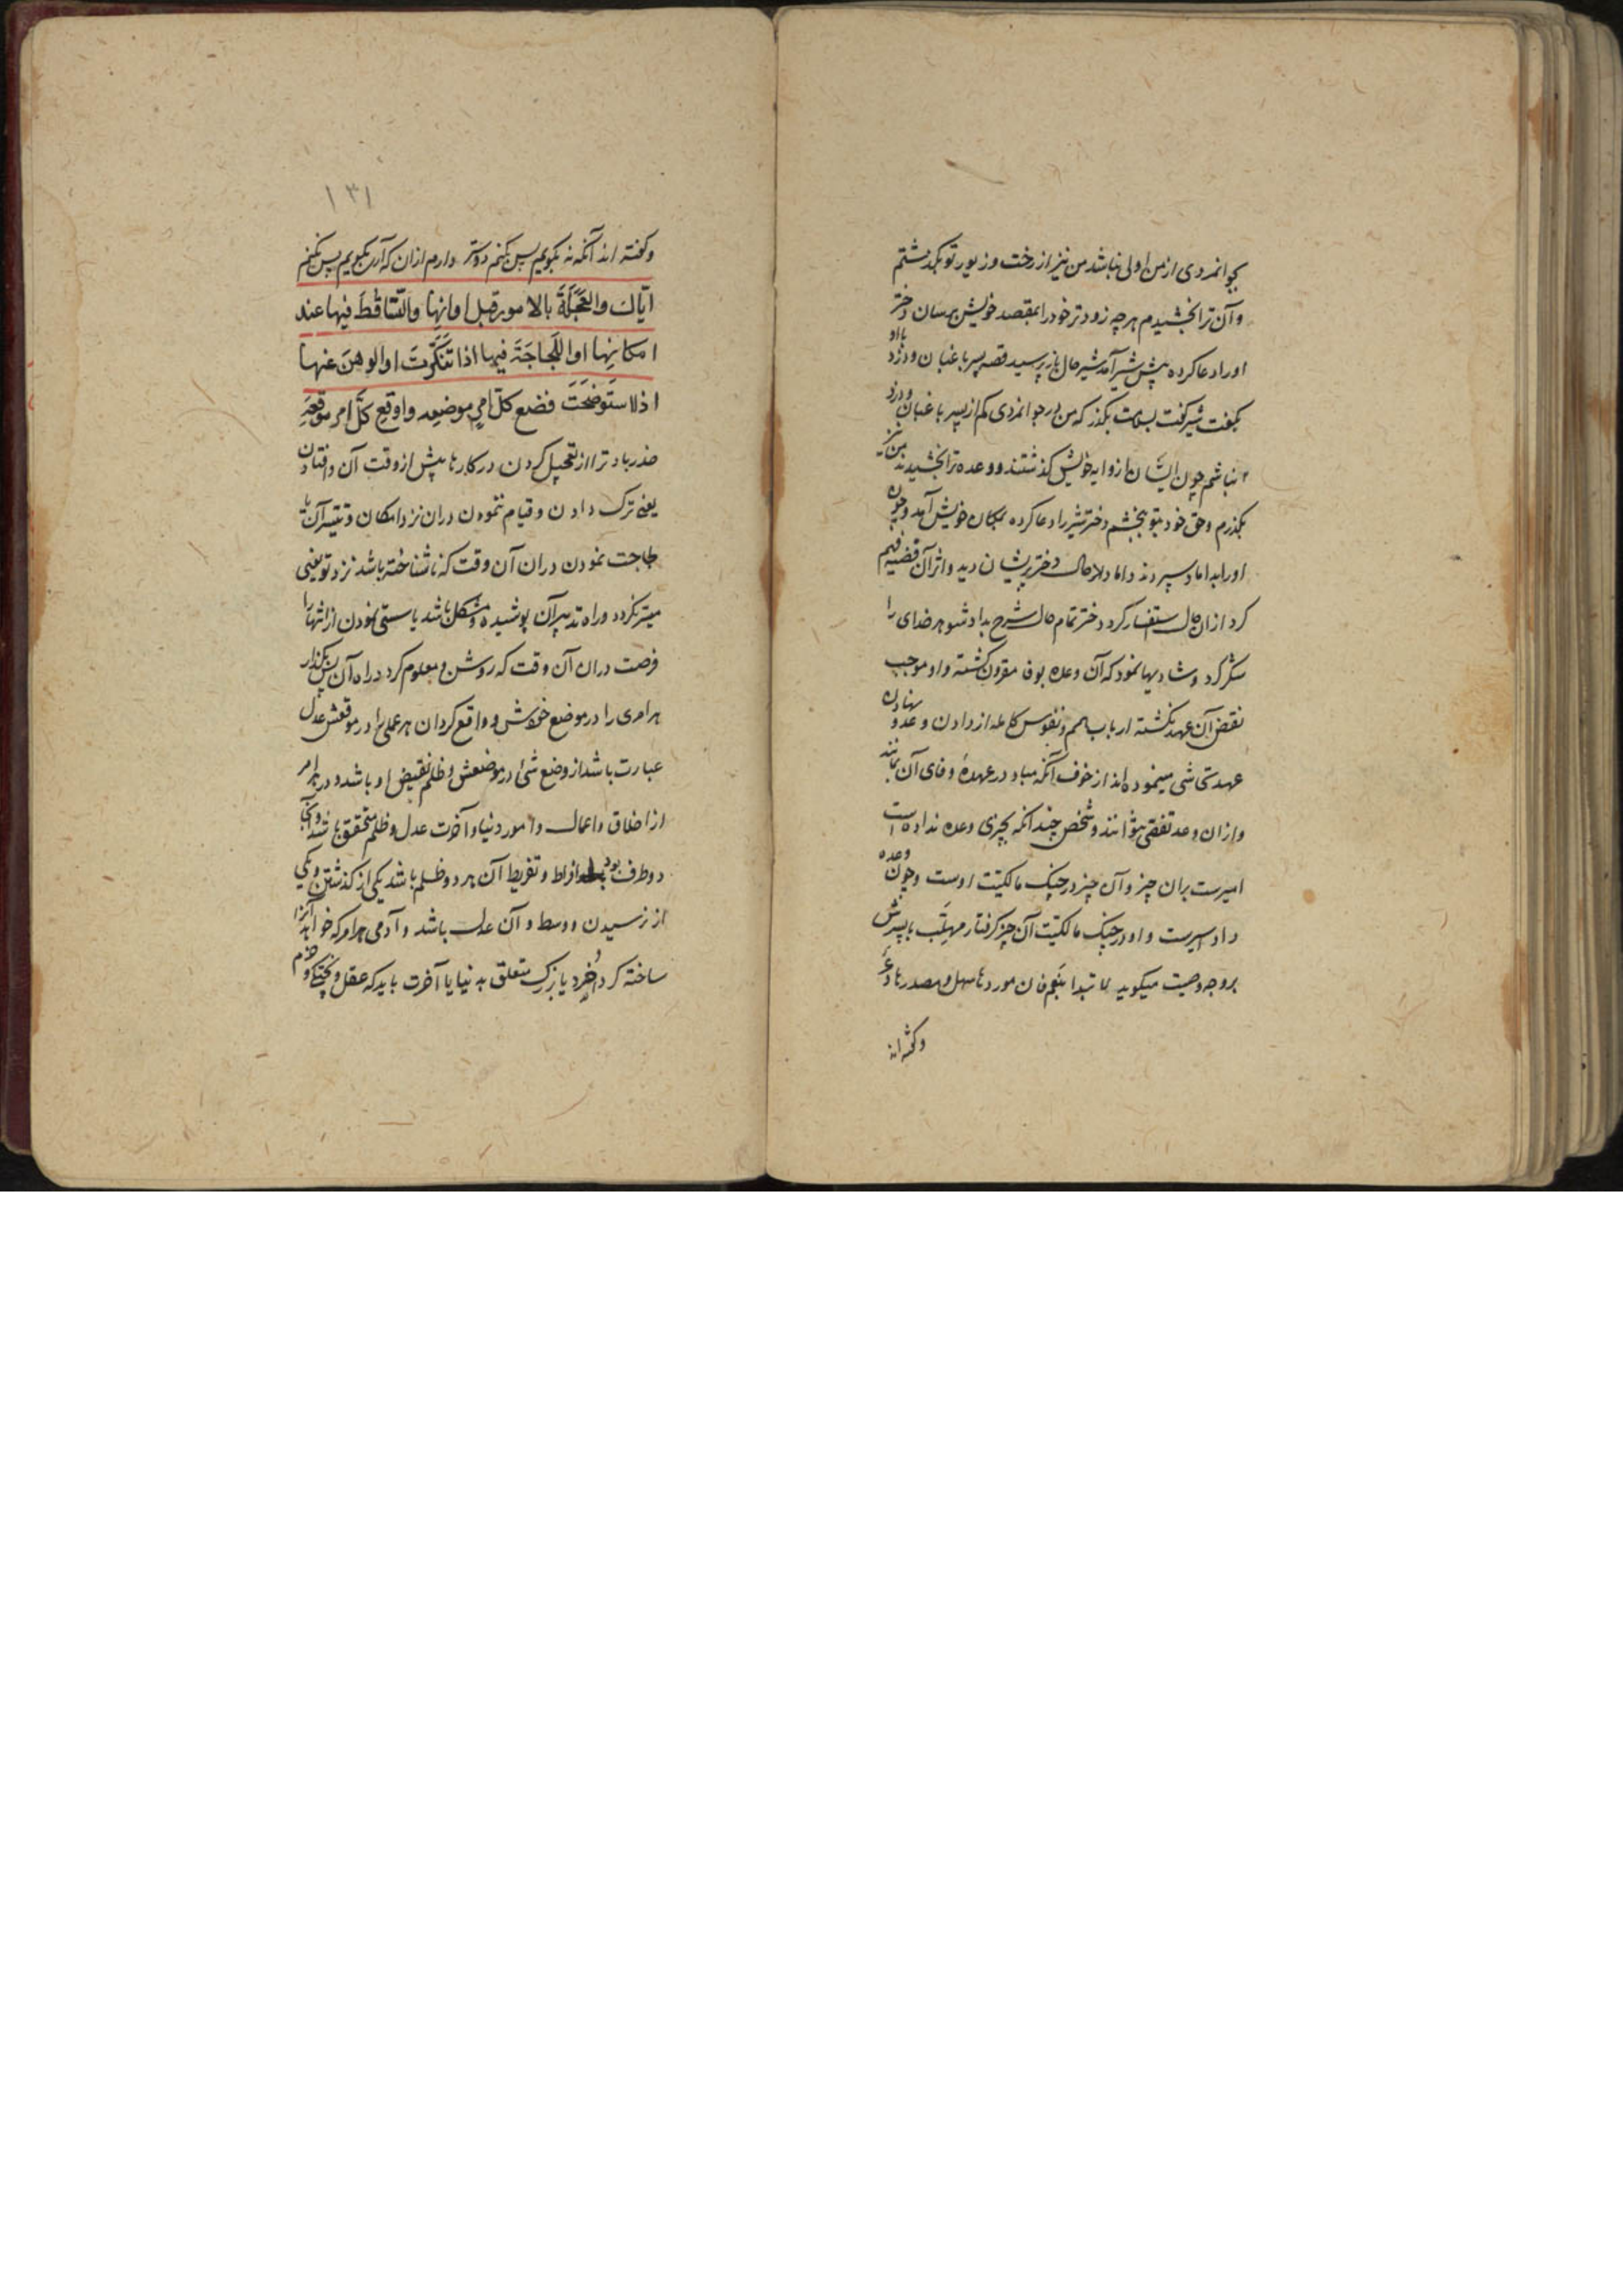 بجوانمردی از من اولی نباشد من نیز از رخت و زیور تو بگذشتم
و آن ترا بخشیدم هر چه زودتر خود را بمقصد خویش برسان دختر
او را دعا کرده پیش شیر آمد شیر حال باز پرسید قصه پیر باغبان و دزد با او
بگفت شیر گفت بسلامت بگذر که من در جوانمردی کم از پیر باغبان و دزد
نباشم چون ایشان از وایه خویش گذشتند و وعده ترا بخشیدند من نیز
بگذرم و حق خود بتو بخشم دختر شیر را دعا کرده بمکان خویش آمد و چون
او را بداماد سپردند داماد حال دختر پریشان دید و اثر آن قضیه فهم
کرد ازان حال استفسار کرد دختر تمام حال شرح بداد شوهر خدای را
شکر کرد و شادیها نمود که آن وعده بوفا مقرون گشته و او موجب
نقض آن عهد نگشته ارباب همم و نفوس کامله از دادن وعده و نهادن
عهد تحاشی مینموده اند از خوف آنکه مبادا در عهدهٔ وفای آن بمانند
و ازان وعد تفصی نتوانند و شخص چندانکه بچیزی وعده نداده است
امیرست بران چیز و آن چیز در چنگ مالکیت اوست و چون وعده
داد اسیرست و او در چنگ مالکیت آن چیز گرفتار مهلب با پسرش
بر وجه وصیت میگوید لا تبدا بنعم فان موردها سهل و مصدرها وعر
و گفته اند
۱۳۱
و گفته اند آنکه نه بگویم پس بکنم دوستر دارم ازان که آری بگویم پس نکنم
ایاك والعَجَلَةَ بالامور قبل اوانِها والتَّساقُطَ فیها عند
امکانِها او اللَّجاجَةَ فیها اذا تَنَکَّرَتْ او الوهنَ عنها
اذا استَوضَحَتْ فضع کلّ امرٍ موضعِه واوقِع کلّ امرٍ موقِعَه
حذر باد ترا از تعجیل کردن در کارها پیش از وقت آن و افتادن
یعنی ترک دادن و قیام ننمودن دران نزد امکان و تیسر آن یا
لجاجت نمودن دران آن وقت که ناشناخته باشد نزد تو یعنی
میسر نگردد و راه تدبیر آن پوشیده و مشکل باشد یا سستی نمودن از انتهاز
فرصت دران آن وقت که روشن و معلوم گردد راه آن پس بگذار
هر امری را در موضع خودش و واقع گردان هر عملی را در موقعش عدل
عبارت باشد از وضع شئ در موضعش و ظلم نقیض او باشد و در هر امر
از اخلاق و اعمال و امور دنیا و آخرت عدل و ظلم متحقق باشد
دو طرف بود افراط و تفریط آن هر دو ظلم باشد یکی از گذشتن و یکی
از نرسیدن و وسط و آن عدل باشد و آدمی هر امر که خواهد آنرا
ساخته کرد خرد یا بزرگ متعلق به دنیا یا آخرت باید که عقل و پختگی و حزم